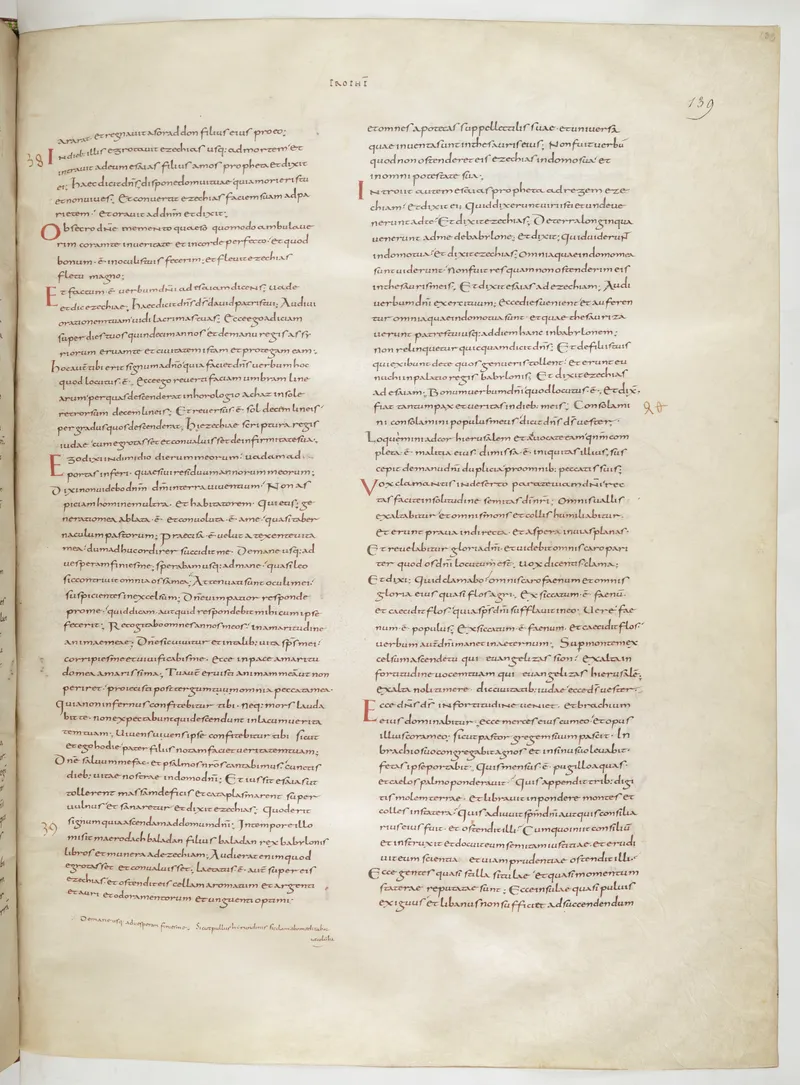 139
ararat· et regnauit asoraddon filius eius pro eo;
38 In dieb; illis egrotauit ezechias usq; ad mortem· et
introiuit ad eum esaias filius amos propheta et dixit
ei; Haec dicit dn̄s; dispone domui tuae quia morieris tu
et non uiues; Et conuertit ezechias faciem suam ad pa
rietem· et orauit ad dn̄m et dixit;
Obsecro dn̄e memento quaeso quomodo ambulaue
rim coram te in ueritate et in corde perfecto· et quod
bonum· ē· in oculis tuis fecerim; et fleuit ezechias
fletu magno;
Et factum· ē· uerbum dn̄i ad esaiam dicens; uade
et dic ezechiae; haec dicit dn̄s d̄s dauid patris tui; Audiui
orationem tuam· uidi lacrimas tuas; Ecce ego adiciam
super dies tuos quindecim annos et de manu regis assy
riorum eruam te et ciuitatem istam et protegam eam;
hoc aut̄ tibi erit signum a dn̄o quia faciet dn̄s uerbum hoc
quod locutus· ē· Ecce ego reuerti faciam umbram line
arum per quas descenderat in horologio achaz in sole
retrorsum decem lineis; Et reuersus· ē· sol decem lineis
per gradus quos descenderat; hiezechiae scriptura regis
iudae· cum egrotasset et conualuisset de infirmitate sua;
Ego dixi in dimidio dierum meorum· uadam ad
portas inferi· quaesiui residuum annorum meorum;
Dixi non uidebo dn̄m dn̄m in terra uiuentium· Non as
piciam hominem ultra· et habitatorem quietis; ge
neratio mea ablata· ē· et conuoluta· ē· a me· quasi taber
naculum pastorum; Praecisa· ē· uelut a texente uita
mea· dum adhuc ordirer succidit me· De mane usq; ad
uesperam finies me; sperabam usq; ad mane· quasi leo
sic contriuit omnia ossa mea; Attenuati sunt oculi mei·
suspicientes in excelsum; Dn̄e uim patior responde
pro me· quid dicam aut quid respondebit mihi cum ipse
fecerit; Recogitabo omnes annos meos· in amaritudine
animae meae; Dn̄e si sic uiuitur et in talib; uita sp̄s mei·
corripies me et uiuificabis me; ecce in pace amaritu
do mea amarissima; Tu aut̄ eruisti animam meam ut non
periret· proiecisti post tergum tuum omnia peccata mea·
Quia non infernus confitebitur tibi· neq; mors lauda
bit te· non expectabunt qui descendunt in lacum uerita
tem tuam; Uiuens uiuens ipse confitebitur tibi· sicut
et ego hodie· pater filiis notam faciet ueritatem tuam;
Dn̄e saluum me fac· et psalmos nr̄os cantabimus cunctis
dieb; uitae nostrae in domo dn̄i; Et iussit esaias ut
tollerent massam de ficis et cataplasmarent super
uulnus et sanaretur· et dixit ezechias; Quod erit
signum quia ascendam ad domum dn̄i; In tempore illo
39 misit maerodach baladan filius baladan rex babylonis
libros et munera ad ezechiam; Audierat enim quod
egrotasset et conualuisset; laetatus· ē· aut̄ super eis
ezechias et ostendit eis cellam aromatum et argenti
et auri et odoramentorum et unguenti optimi·
De mane usq; ad uesperam finies me; Sicut pullus hirundinis sic clamabo meditabor
ut columba
et omnes apotecas suppellectilis suae· et uniuersa
quae inuenta sunt in thesauris eius; Non fuit uerbū
quod non ostenderet eis ezechias in domo sua· et
in omni potestate sua;
Introiit autem esaias propheta ad regem eze
chiam· et dixit ei; Quid dixerunt uiri isti et unde ue
nerunt ad te; Et dixit ezechias; De terra longinqua
uenerunt ad me de babylone; et dixit; Quid uiderunt
in domo tua· et dixit ezechias; Omnia quae in domo mea
sunt uiderunt· non fuit res quam non ostenderim eis
in thesauris meis; Et dixit esaias ad ezechiam; Audi
uerbum dn̄i exercituum; ecce dies uenient et auferen
tur omnia quae in domo tua sunt· et quae thesauriza
uerunt patres tui usq; ad diem hanc in babylonem;
non relinquetur quicquam dicit dn̄s; Et de filiis tuis
qui exibunt de te quos genueris tollent· et erunt eu
nuchi in palatio regis babylonis; Et dixit ezechias
ad esaiam; Bonum uerbum dn̄i quod locutus· ē·; et dix̄·
fiat tantum pax et ueritas in dieb; meis; Consolami
ni consolamini populus meus dicit dn̄s d̄s uester;
Loquemini ad cor hierusalem et aduocate eam qm̄ com
pleta· ē· malitia eius dimissa· ē· iniquitas illius; sus
cepit de manu dn̄i duplicia pro omnib; peccatis suis;
Vox clamantis in deserto parate uiam dn̄i· rec
tas facite in solitudine semitas dī nr̄i; Omnis uallis
exaltabitur et omnis mons et collis humiliabitur·
et erunt praua in directa· et aspera in uias planas·
Et reuelabitur gloria dn̄i· et uidebit omnis caro pari
ter quod os dn̄i locutum est; uox dicentis clama;
Et dixi; Quid clamabo· omnis caro faenum et omnis
gloria eius quasi flos agri; exsiccatum· ē· faenū·
et caecidit flos· quia sp̄s dn̄i sufflauit in eo; Uere fae
num· ē· populus; Exsiccatum· ē· faenum· et caecidit flos·
uerbum aut̄ dn̄i manet in aeternum; Sup montem ex
celsum ascende tu qui euangelizas sion· exalta in
fortitudine uocem tuam qui euangelizas hierusalē;
exalta noli timere· dic ciuitatib; iudae ecce d̄s uester;
Ecce dn̄s d̄s in fortitudine ueniet· et brachium
eius dominabitur; ecce merces eius cum eo· et opus
illius coram eo; sicut pastor gregem suum pascit· In
brachio suo congregabit agnos· et in sinu suo leuabit·
fetas ipse portabit; Quis mensus· ē· pugillo aquas·
et caelos palmo ponderauit· Quis appendit trib; digi
tis molem terrae· et librauit in pondere montes et
colles in statera; Quis adiuuit sp̄m dn̄i aut quis consilia
rius eius fuit· et ostendit illi; Cum quo iniit consiliū
et instruxit et docuit eum semitam iustitiae· et erudi
uit eum scientia· et uiam prudentiae ostendit illi·
Ecce gentes quasi stilla situlae· et quasi momentum
staterae reputatae sunt; Ecce insulae quasi puluis
exiguus et libanus non sufficiet ad succendendum